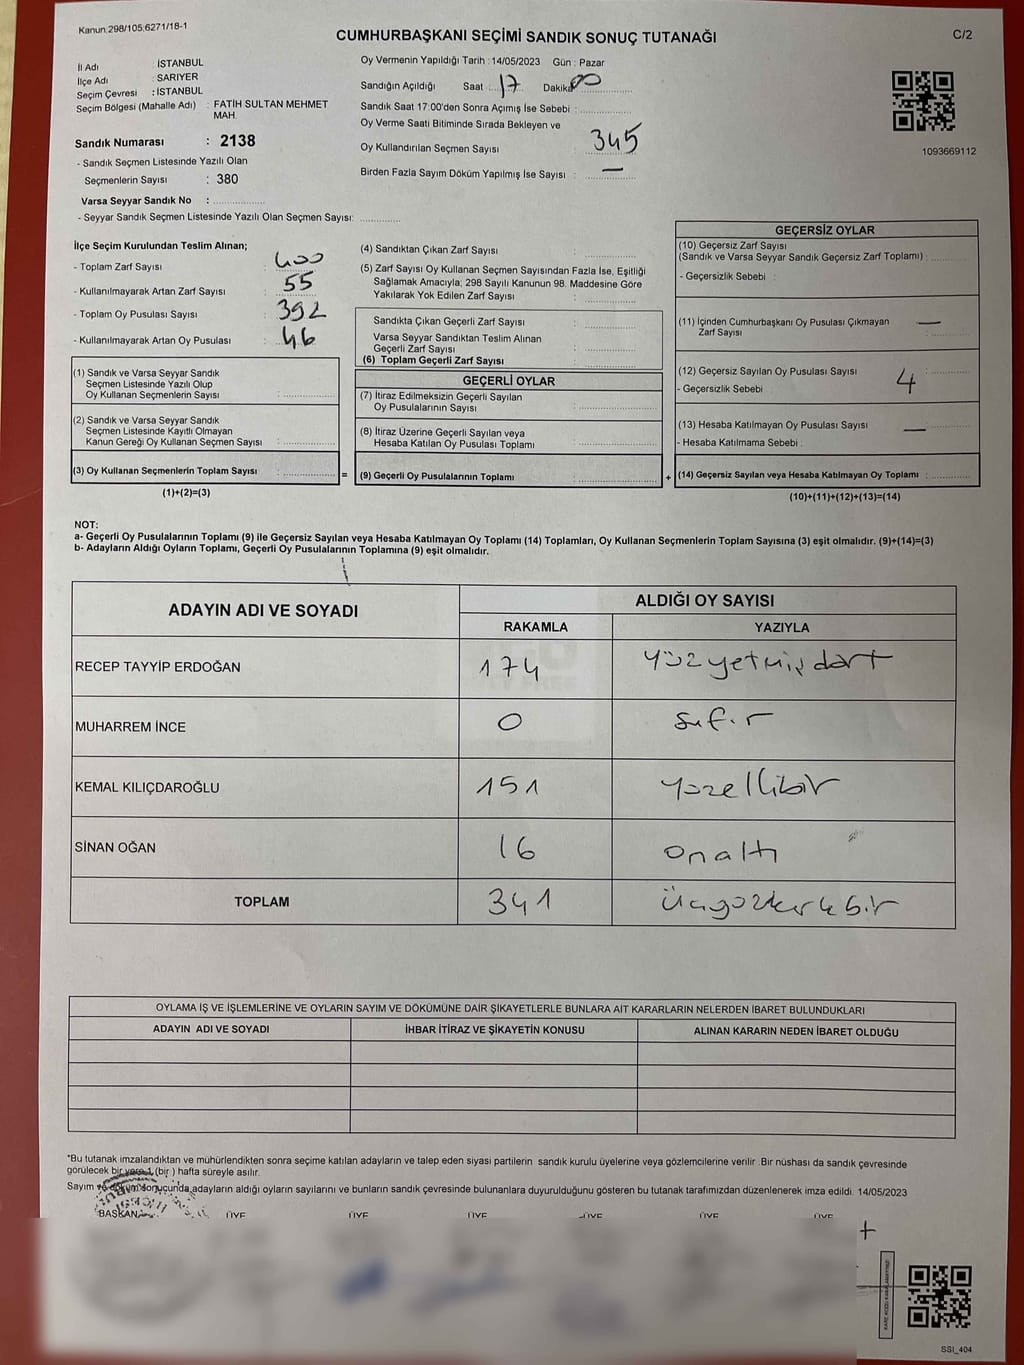 Kanun:298/105;6271/18-1
CUMHURBAŞKANI SEÇİMİ SANDIK SONUÇ TUTANAĞI
C/2
İl Adı : İSTANBUL
İlçe Adı : SARIYER
Seçim Çevresi : İSTANBUL
Seçim Bölgesi (Mahalle Adı) : FATİH SULTAN MEHMET MAH.
Sandık Numarası : 2138
- Sandık Seçmen Listesinde Yazılı Olan
Seçmenlerin Sayısı : 380
Varsa Seyyar Sandık No :
- Seyyar Sandık Seçmen Listesinde Yazılı Olan Seçmen Sayısı:
Oy Vermenin Yapıldığı Tarih : 14/05/2023 Gün : Pazar
Sandığın Açıldığı Saat : 17 Dakika: 00
Sandık Saat 17:00'den Sonra Açımış İse Sebebi :
Oy Verme Saati Bitiminde Sırada Bekleyen ve
Oy Kullandırılan Seçmen Sayısı : 345
Birden Fazla Sayım Döküm Yapılmış İse Sayısı : —
1093669112
İlçe Seçim Kurulundan Teslim Alınan;
- Toplam Zarf Sayısı : 400
- Kullanılmayarak Artan Zarf Sayısı : 55
- Toplam Oy Pusulası Sayısı : 392
- Kullanılmayarak Artan Oy Pusulası : 46
(1) Sandık ve Varsa Seyyar Sandık
Seçmen Listesinde Yazılı Olup
Oy Kullanan Seçmenlerin Sayısı :
(2) Sandık ve Varsa Seyyar Sandık
Seçmen Listesinde Kayıtlı Olmayan
Kanun Gereği Oy Kullanan Seçmen Sayısı :
(3) Oy Kullanan Seçmenlerin Toplam Sayısı :
(1)+(2)=(3)
(4) Sandıktan Çıkan Zarf Sayısı :
(5) Zarf Sayısı Oy Kullanan Seçmen Sayısından Fazla İse, Eşitliği
Sağlamak Amacıyla; 298 Sayılı Kanunun 98. Maddesine Göre
Yakılarak Yok Edilen Zarf Sayısı :
Sandıkta Çıkan Geçerli Zarf Sayısı :
Varsa Seyyar Sandıktan Teslim Alınan
Geçerli Zarf Sayısı :
(6) Toplam Geçerli Zarf Sayısı :
GEÇERLİ OYLAR
(7) İtiraz Edilmeksizin Geçerli Sayılan
Oy Pusulalarının Sayısı :
(8) İtiraz Üzerine Geçerli Sayılan veya
Hesaba Katılan Oy Pusulası Toplamı :
= (9) Geçerli Oy Pusulalarının Toplamı :
GEÇERSİZ OYLAR
(10) Geçersiz Zarf Sayısı
(Sandık ve Varsa Seyyar Sandık Geçersiz Zarf Toplamı) :
- Geçersizlik Sebebi :
(11) İçinden Cumhurbaşkanı Oy Pusulası Çıkmayan
Zarf Sayısı : —
(12) Geçersiz Sayılan Oy Pusulası Sayısı : 4
- Geçersizlik Sebebi :
(13) Hesaba Katılmayan Oy Pusulası Sayısı : —
- Hesaba Katılmama Sebebi :
+ (14) Geçersiz Sayılan veya Hesaba Katılmayan Oy Toplamı :
(10)+(11)+(12)+(13)=(14)
NOT:
a- Geçerli Oy Pusulalarının Toplamı (9) ile Geçersiz Sayılan veya Hesaba Katılmayan Oy Toplamı (14) Toplamları, Oy Kullanan Seçmenlerin Toplam Sayısına (3) eşit olmalıdır. (9)+(14)=(3)
b- Adayların Aldığı Oyların Toplamı, Geçerli Oy Pusulalarının Toplamına (9) eşit olmalıdır.
ADAYIN ADI VE SOYADI
ALDIĞI OY SAYISI
RAKAMLA YAZIYLA
RECEP TAYYİP ERDOĞAN 174 yüzyetmişdört
MUHARREM İNCE 0 sıfır
KEMAL KILIÇDAROĞLU 151 yüzellibir
SİNAN OĞAN 16 onaltı
TOPLAM 341 üçyüzkırkbir
OYLAMA İŞ VE İŞLEMLERİNE VE OYLARIN SAYIM VE DÖKÜMÜNE DAİR ŞİKAYETLERLE BUNLARA AİT KARARLARIN NELERDEN İBARET BULUNDUKLARI
ADAYIN ADI VE SOYADI İHBAR İTİRAZ VE ŞİKAYETİN KONUSU ALINAN KARARIN NEDEN İBARET OLDUĞU
*Bu tutanak imzalandıktan ve mühürlendikten sonra seçime katılan adayların ve talep eden siyasi partilerin sandık kurulu üyelerine veya gözlemcilerine verilir .Bir nüshası da sandık çevresinde
görülecek bir yere 1 (bir ) hafta süreyle asılır.
Sayım ve döküm sonucunda adayların aldığı oyların sayılarını ve bunların sandık çevresinde bulunanlara duyurulduğunu gösteren bu tutanak tarafımızdan düzenlenerek imza edildi. 14/05/2023
BAŞKAN ÜYE ÜYE ÜYE ÜYE ÜYE ÜYE
SSI_404